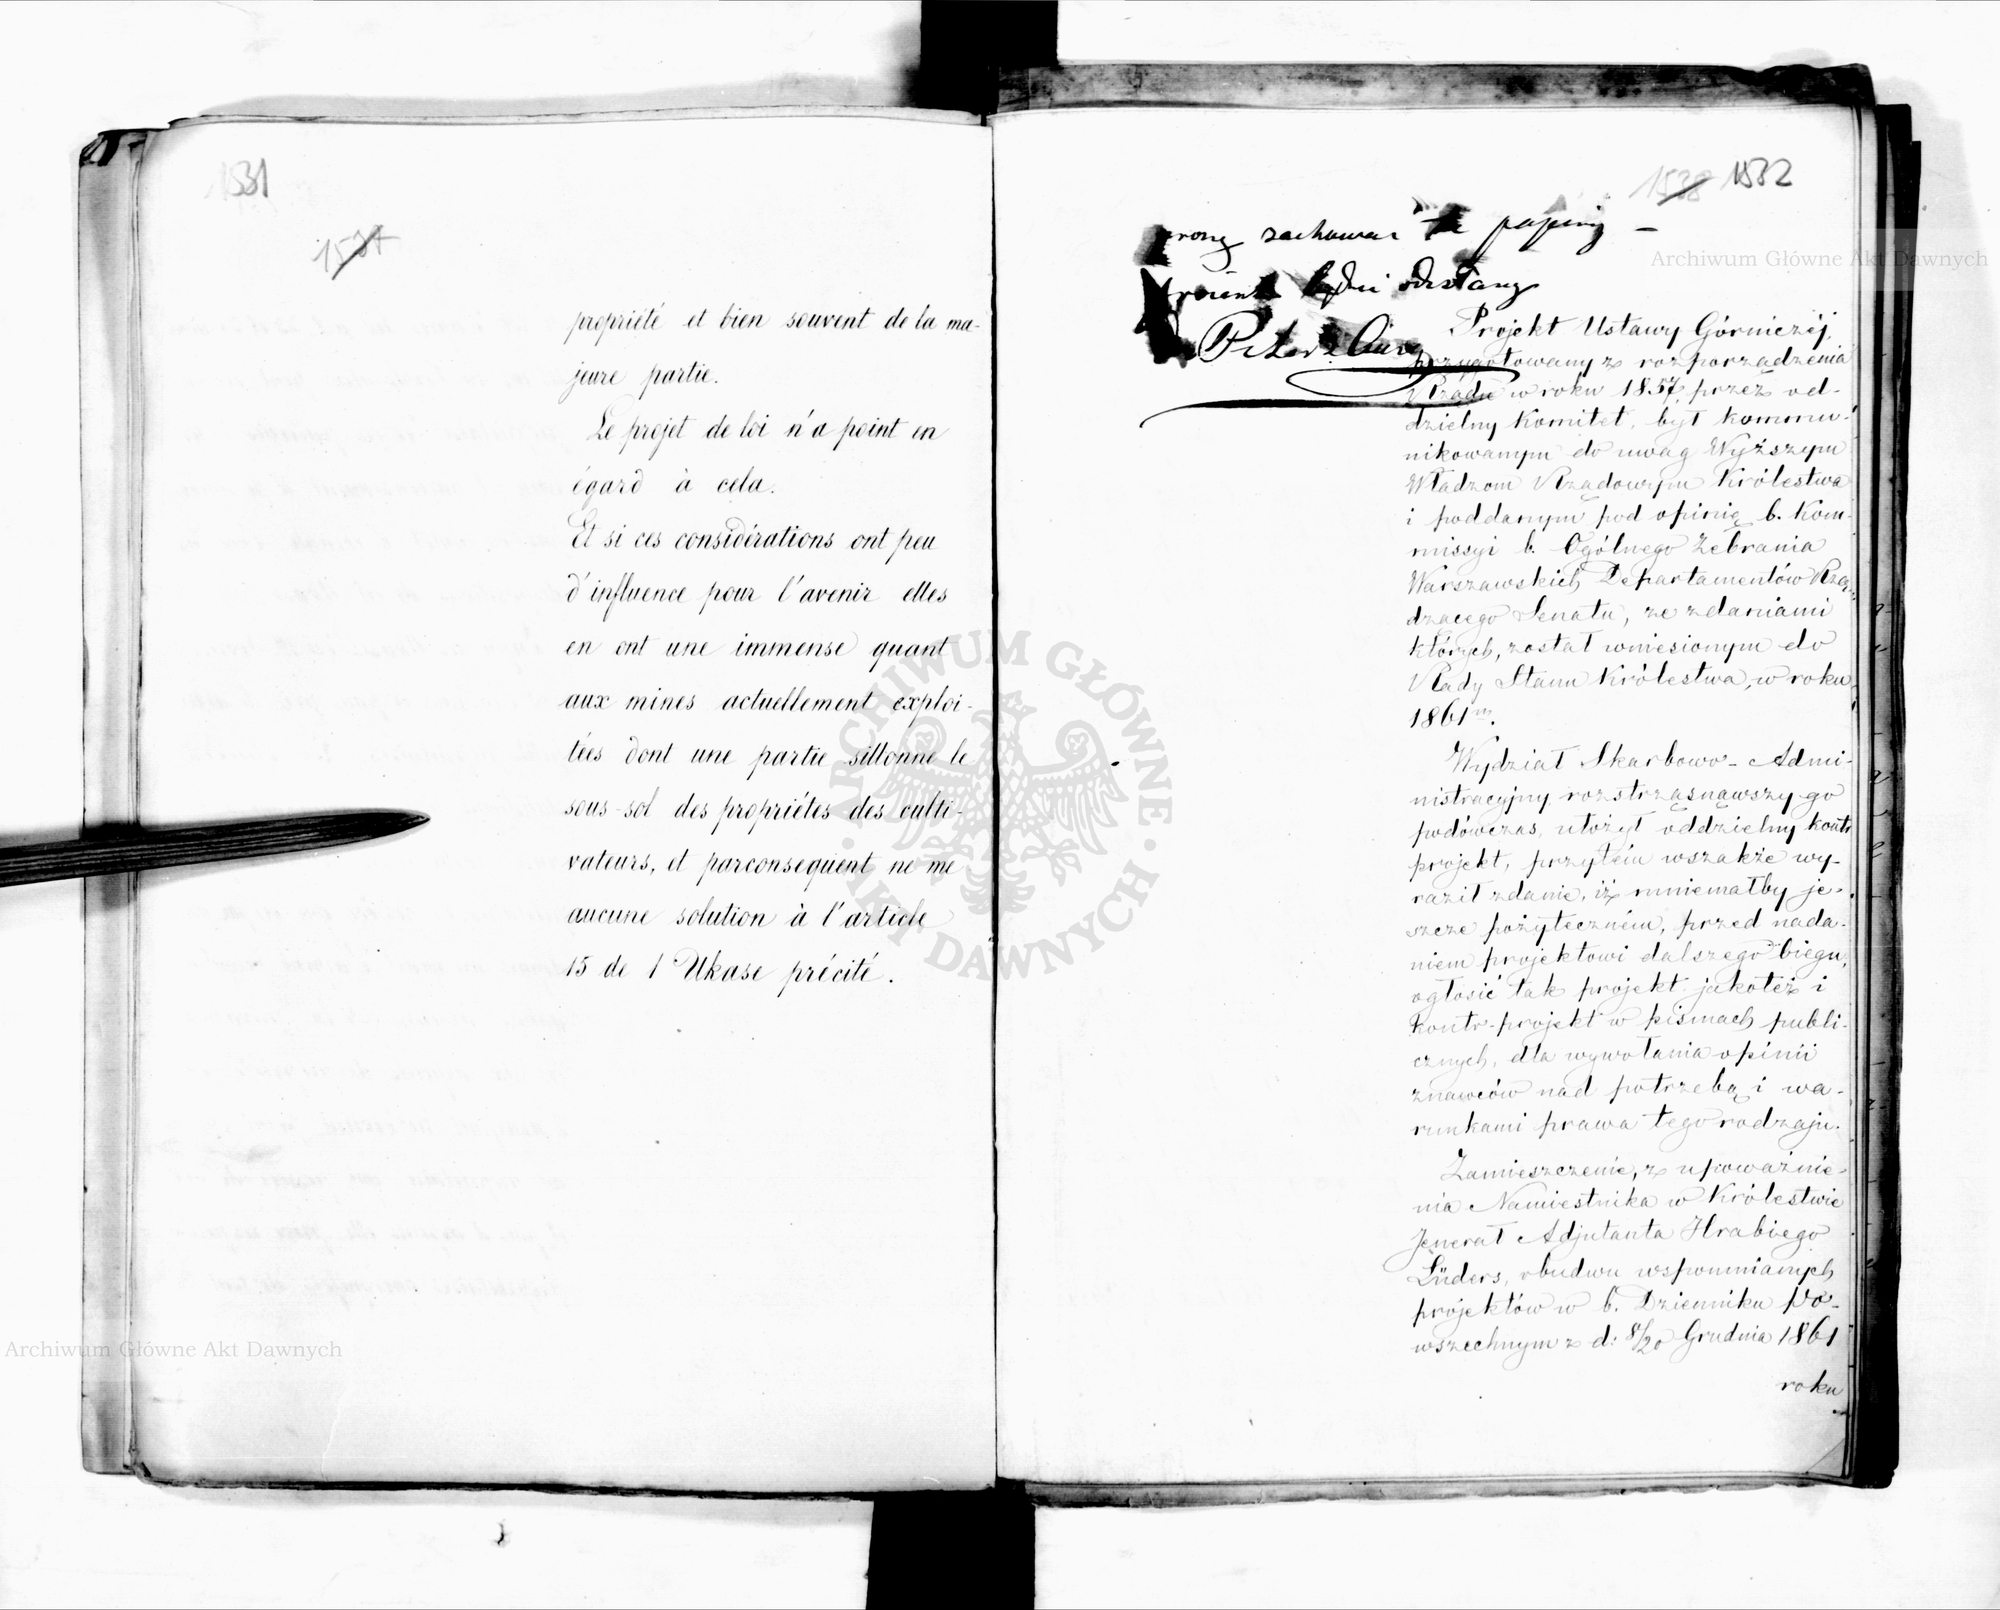 1531
1537
propriété et bien souvent de la ma-
jeure partie.
Le projet de loi n'a point en
égard à cela.
Et si ces considérations ont peu
d'influence pour l'avenir elles
en ont une immense quant
aux mines actuellement exploi-
tées dont une partie sillonne le
sous-sol des propriétes des culti-
vateurs, et parconsequent ne me
aucune solution à l'article
15 de l Ukase précité.
1538 1532
zachować te papiery —
będzie odesłany
Projekt Ustawy Górniczéj,
przygotowany z rozporządzenia
Rządu w roku 1857, przez od-
dzielny Komitet, był kommu-
nikowanym do uwag Wyższym
Władzom Rządowym Królestwa
i poddanym pod opinię b. Kom-
missyi b. Ogólnego Zebrania
Warszawskich Departamentów Rzą-
dzącego Senatu, ze zdaniami
których, został wniesionym do
Rady Stanu Królestwa, w roku
1861m.
Wydział Skarbowo-Admi-
nistracyjny rozstrząsnąwszy go
podówczas, ułożył oddzielny kontr
projekt, przytém wszakże wy-
raził zdanie, iż mniemałby je-
szcze pożyteczném, przed nada-
niem projektowi dalszego biegu,
ogłosić tak projekt jakoteż i
kontr-projekt w pismach publi-
cznych, dla wywołania opinii
znawców nad potrzebą i wa-
runkami prawa tego rodzaju.
Zamieszczenie, z upoważnie-
nia Namiestnika w Królestwie
Jenerał Adjutanta Hrabiego
Lüders, obudwu wspomnianych
projektów w b. Dzienniku Po-
wszechnym z d: 8/20 Grudnia 1861
roku
Archiwum Główne Akt Dawnych
Archiwum Główne Akt Dawnych
ARCHIWUM GŁÓWNE AKT DAWNYCH